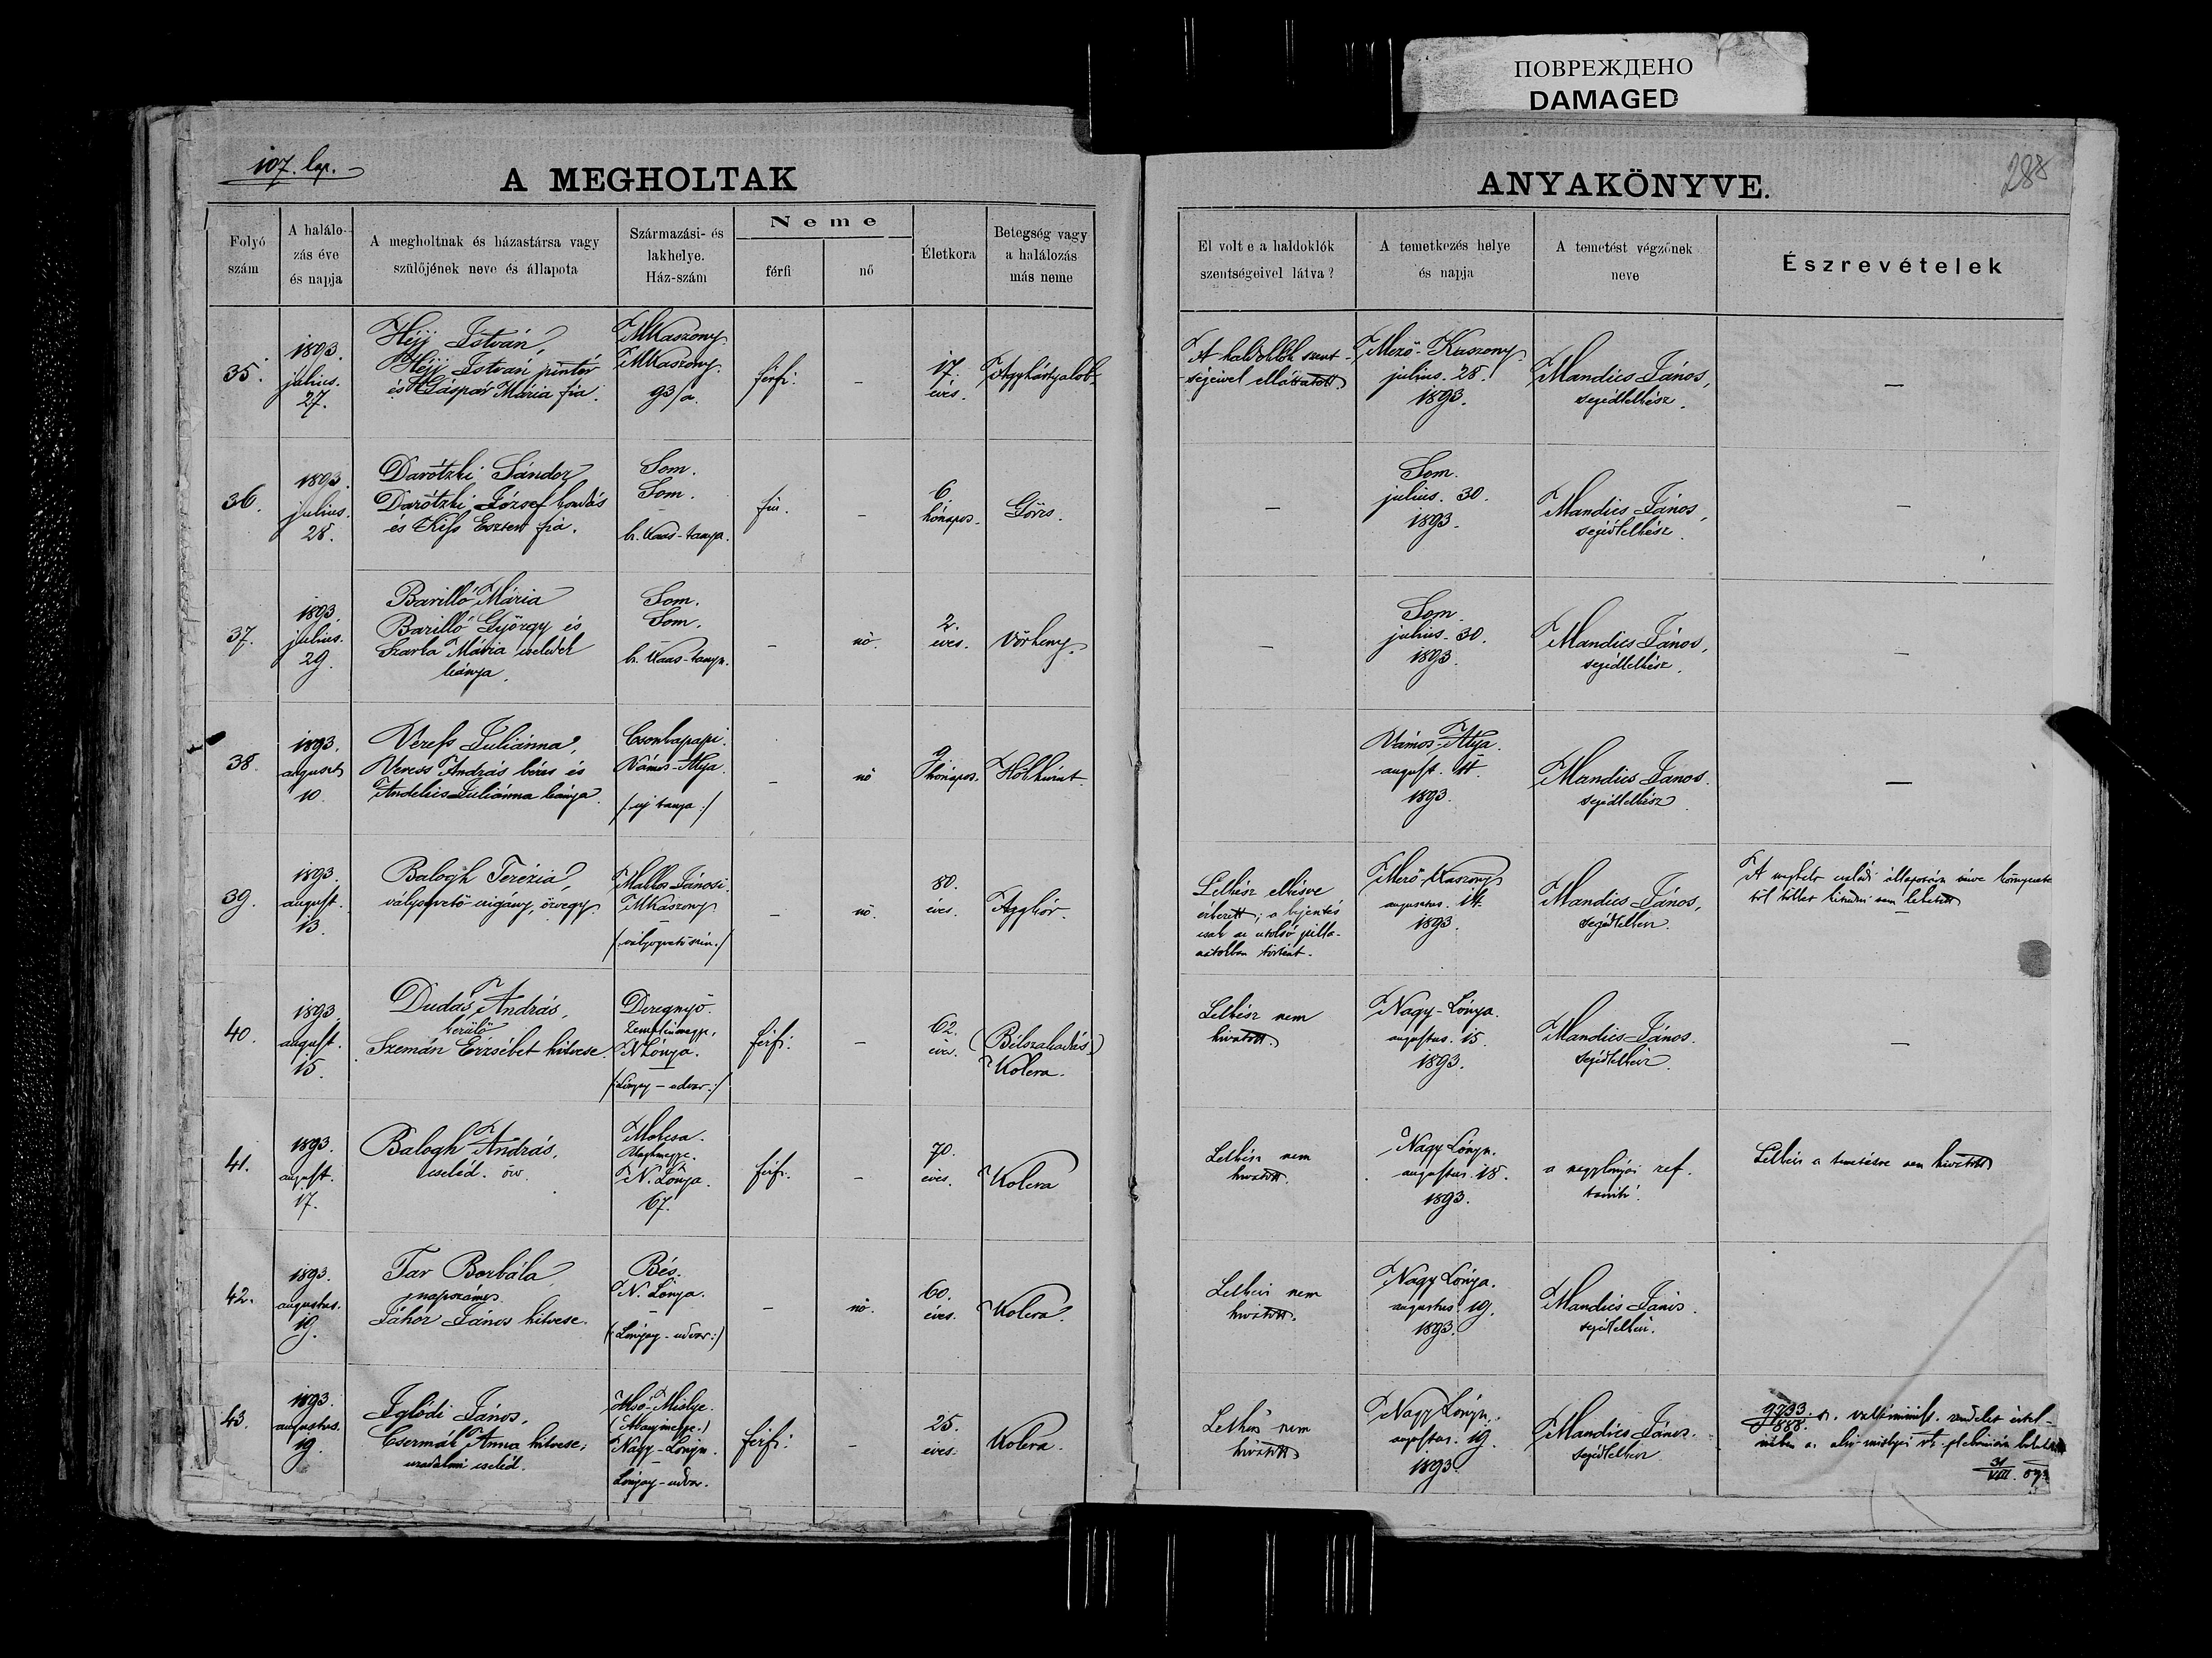 ПОВРЕЖДЕНО
DAMAGED
107. lap.
A MEGHOLTAK
ANYAKÖNYVE.
288
Folyó szám
A halálo-zás éve és napja
A megholtnak és házastársa vagy szülőjének neve és állapota
Származási- és lakhelye. Ház-szám
Neme
férfi
nő
Életkora
Betegség vagy a halálozás más neme
El volt e a haldoklók szentségeivel látva?
A temetkezés helye és napja
A temetést végzőnek neve
Észrevételek
35.
1893.
július.
27.
Héjj István,
Héjj István pintér
és Gáspár Mária fia.
MKaszony
MKaszony
93/a.
férfi.
-
17.
éves.
Agyhártyalob.
A haldoklók szent-
ségeivel elláttatott
Mező-Kaszony
július. 28.
1893.
Mandics János,
segédlelkész.
-
36.
1893.
július.
28.
Darótzki Sándor
Darótzki József
és Kiss Eszter fia.
Som.
Som.
-
b. Kaas-tanya.
fiú.
-
6.
hónapos.
Görcs.
-
Som.
július. 30.
1893.
Mandics János,
segédlelkész.
-
37.
1893.
július.
29.
Barilló Mária
Barilló György és
Szarka Mária cselédek
leánya.
Som.
Som.
-
b. Kaas-tanya.
-
nő.
2.
éves.
Vörheny.
-
Som.
július. 30.
1893.
Mandics János,
segédlelkész.
-
38.
1893.
auguszt
10.
Veress Juliánna,
Veress András béres és
Andelics Juliánna leánya.
Csonkapapi.
Vámos-Atya.
/: új tanya :/
-
nő
9
hónapos.
Hökhurut.
Vámos-Atya.
august. 11.
1893.
Mandics János.
segédlelkész
-
39.
1893.
august.
13.
Balogh Terézia,
vályogvető cigány, özvegy.
Jánosi.
MKaszony.
-
-
nő.
80.
éves.
Aggkór.
Lelkész elkésve
érkezett; a bejentés
csak az utolsó pilla-
natokban történt.
Mező-Kaszony
augusztus. 14.
1893.
Mandics János,
segédlelkész.
40.
1893.
august.
15.
Dudás András,
kerülő
Szemán Erzsébet hitvese.
Deregnyő.
Zemplénmegye.
NLónya.
/: Lónyay-udvar. :/
férfi.
-
62.
éves.
(Bélszakadás.)
Kolera.
Lelkész nem
hivatott.
Nagy-Lónya.
augusztus. 15.
1893.
Mandics János.
segédlelkész.
-
41.
1893.
august.
17.
Balogh András,
cseléd. öv.
Mokcsa.
Unghmegye.
N. Lónya.
67.
férfi.
-
70.
éves.
Kolera
Lelkész nem
hivatott.
Nagy Lónya.
augusztus. 18.
1893.
a nagylónyai ref.
tanító.
Lelkész a temetésre nem hivatott
42.
1893.
augustus.
19.
Tar Borbála
napszámos
János hitvese.
Bés.
N. Lónya.
-
(: Lónyay-udvar :)
-
nő.
60.
éves.
Kolera.
Lelkész nem
hivatott.
Nagy Lónya.
augusztus. 19.
1893.
Mandics János.
segédlelkész.
43.
1893.
augustus.
19.
Iglódi János,
Csermák Anna hitvese;
uradalmi cseléd.
Alsó-Mislye.
(Abaujmegye.)
Nagy-Lónya.
-
Lónyay-udvar.
férfi.
-
25.
éves.
Kolera.
Lelkész nem
hivatott
Nagy Lónya.
augusztus. 19.
1893.
Mandics János.
segédlelkész
9733.
888.
31
VIII.